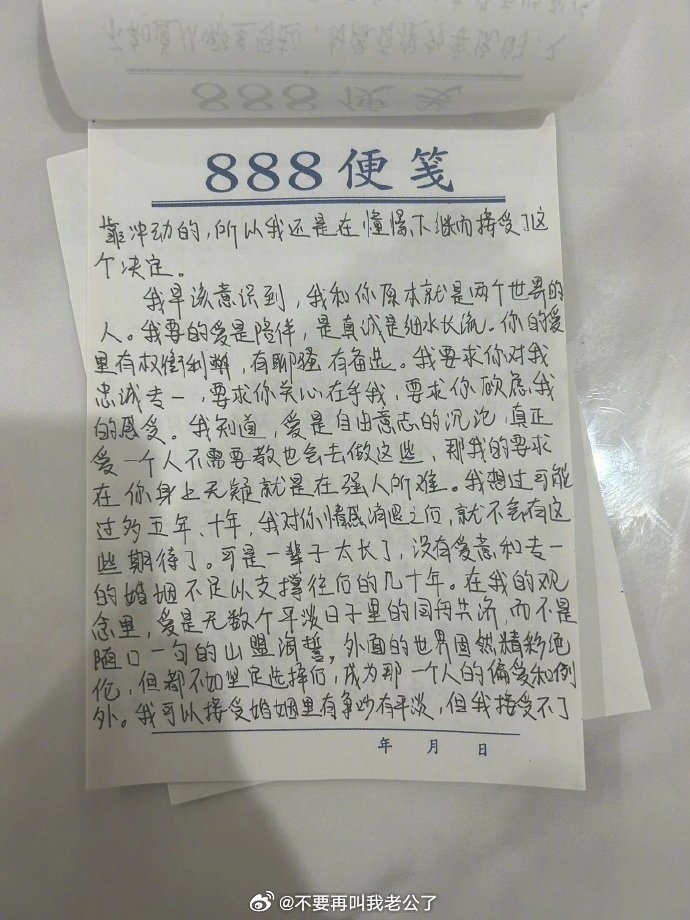 888便笺
靠冲动的,所以我还是在憧憬下继而接受了这
个决定。
我早该意识到,我和你原本就是两个世界的
人。我要的爱是陪伴,是真诚是细水长流。你的爱
里有权衡利弊,有聊骚有备选。我要求你对我
忠诚专一,要求你关心在乎我,要求你顾虑我
的感受。我知道,爱是自由意志的沉沦,真正
爱一个人不需要教也会去做这些,那我的要求
在你身上无疑就是在强人所难。我想过可能
过个五年、十年,我对你情感消退之后,就不会有这
些期待了。可是一辈子太长了,没有爱意和专一
的婚姻不足以支撑往后的几十年。在我的观
念里,爱是无数个平淡日子里的同舟共济,而不是
随口一句的山盟海誓。外面的世界固然精彩绝
伦,但都不如坚定选择后,成为那一个人的偏爱和例
外。我可以接受婚姻里有争吵有平淡,但我接受不了
年 月 日
@不要再叫我老公了